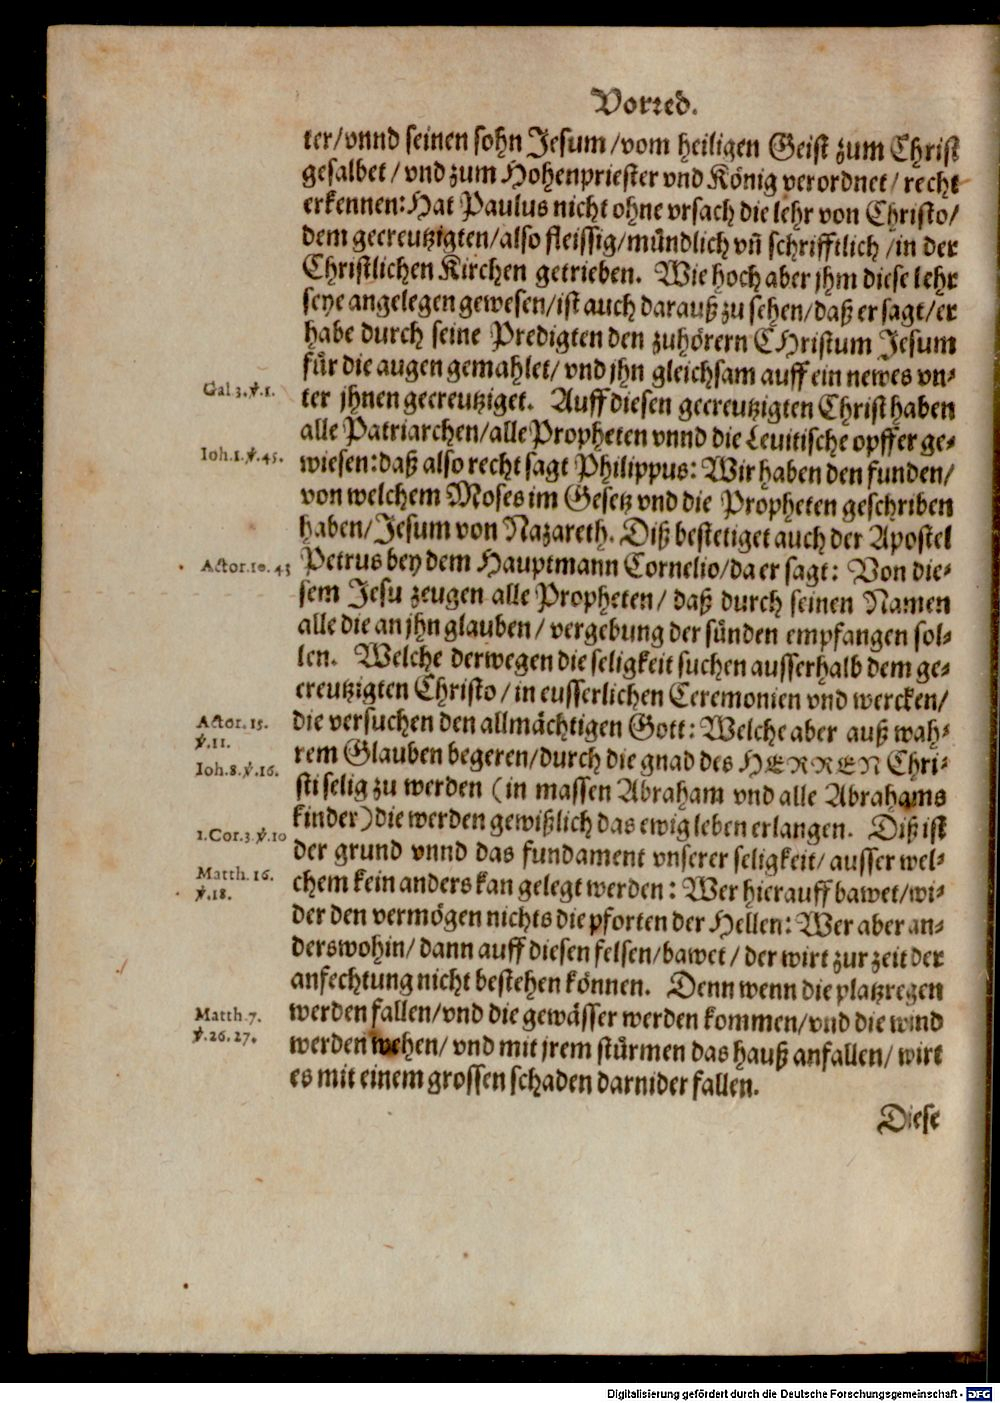 Vorred.
ter/vnnd seinen sohn Jesum/vom heiligen Geist zum Christ
gesalbet/vnd zum Hohenpriester vnd König verordnet/recht
erkennen: Hat Paulus nicht ohne vrsach die lehr von Christo/
dem gecreutzigten/also fleissig/mündlich vñ schrifftlich/in der
Christlichen Kirchen getrieben. Wie hoch aber jhm diese lehr
seye angelegen gewesen/ist auch darauß zu sehen/daß er sagt/er
habe durch seine Predigten den zuhörern CHristum Jesum
für die augen gemahlet/vnd jhn gleichsam auff ein newes vn-
Gal. 3. ℣. 1.
ter jhnen gecreutziget. Auff diesen gecreutzigten Christ haben
alle Patriarchen/alle Propheten vnnd die Leuitische opffer ge-
Ioh. 1. ℣. 45.
wiesen: daß also recht sagt Philippus: Wir haben den funden/
von welchem Moses im Gesetz vnd die Propheten geschriben
haben/Jesum von Nazareth. Diß bestetiget auch der Apostel
Actor. 10. 43
Petrus bey dem Hauptmann Cornelio/da er sagt: Von die-
sem Jesu zeugen alle Propheten/daß durch seinen Namen
alle die an jhn glauben/vergebung der sünden empfangen sol-
len. Welche derwegen die seligkeit suchen ausserhalb dem ge-
creutzigten Christo/in eusserlichen Ceremonien vnd wercken/
Actor. 15.
℣. 11.
die versuchen den allmächtigen Gott: Welche aber auß wah-
rem Glauben begeren/durch die gnad des HERREN Chri-
Ioh. 8. ℣. 16.
sti selig zu werden (in massen Abraham vnd alle Abrahams
kinder) die werden gewißlich das ewig leben erlangen. Diß ist
1. Cor. 3. ℣. 10
der grund vnnd das fundament vnserer seligkeit/ausser wel-
Matth. 16.
℣. 18.
chem kein anders kan gelegt werden: Wer hierauff bawet/wi-
der den vermögen nichts die pforten der Hellen: Wer aber an-
derswohin/dann auff diesen felsen/bawet/der wirt zur zeit der
anfechtung nicht bestehen können. Denn wenn die platzregen
Matth. 7.
℣. 26. 27.
werden fallen/vnd die gewässer werden kommen/vnd die wind
werden wehen/vnd mit jrem stürmen das hauß anfallen/wirt
es mit einem grossen schaden darnider fallen.
Diese
Digitalisierung gefördert durch die Deutsche Forschungsgemeinschaft - DFG